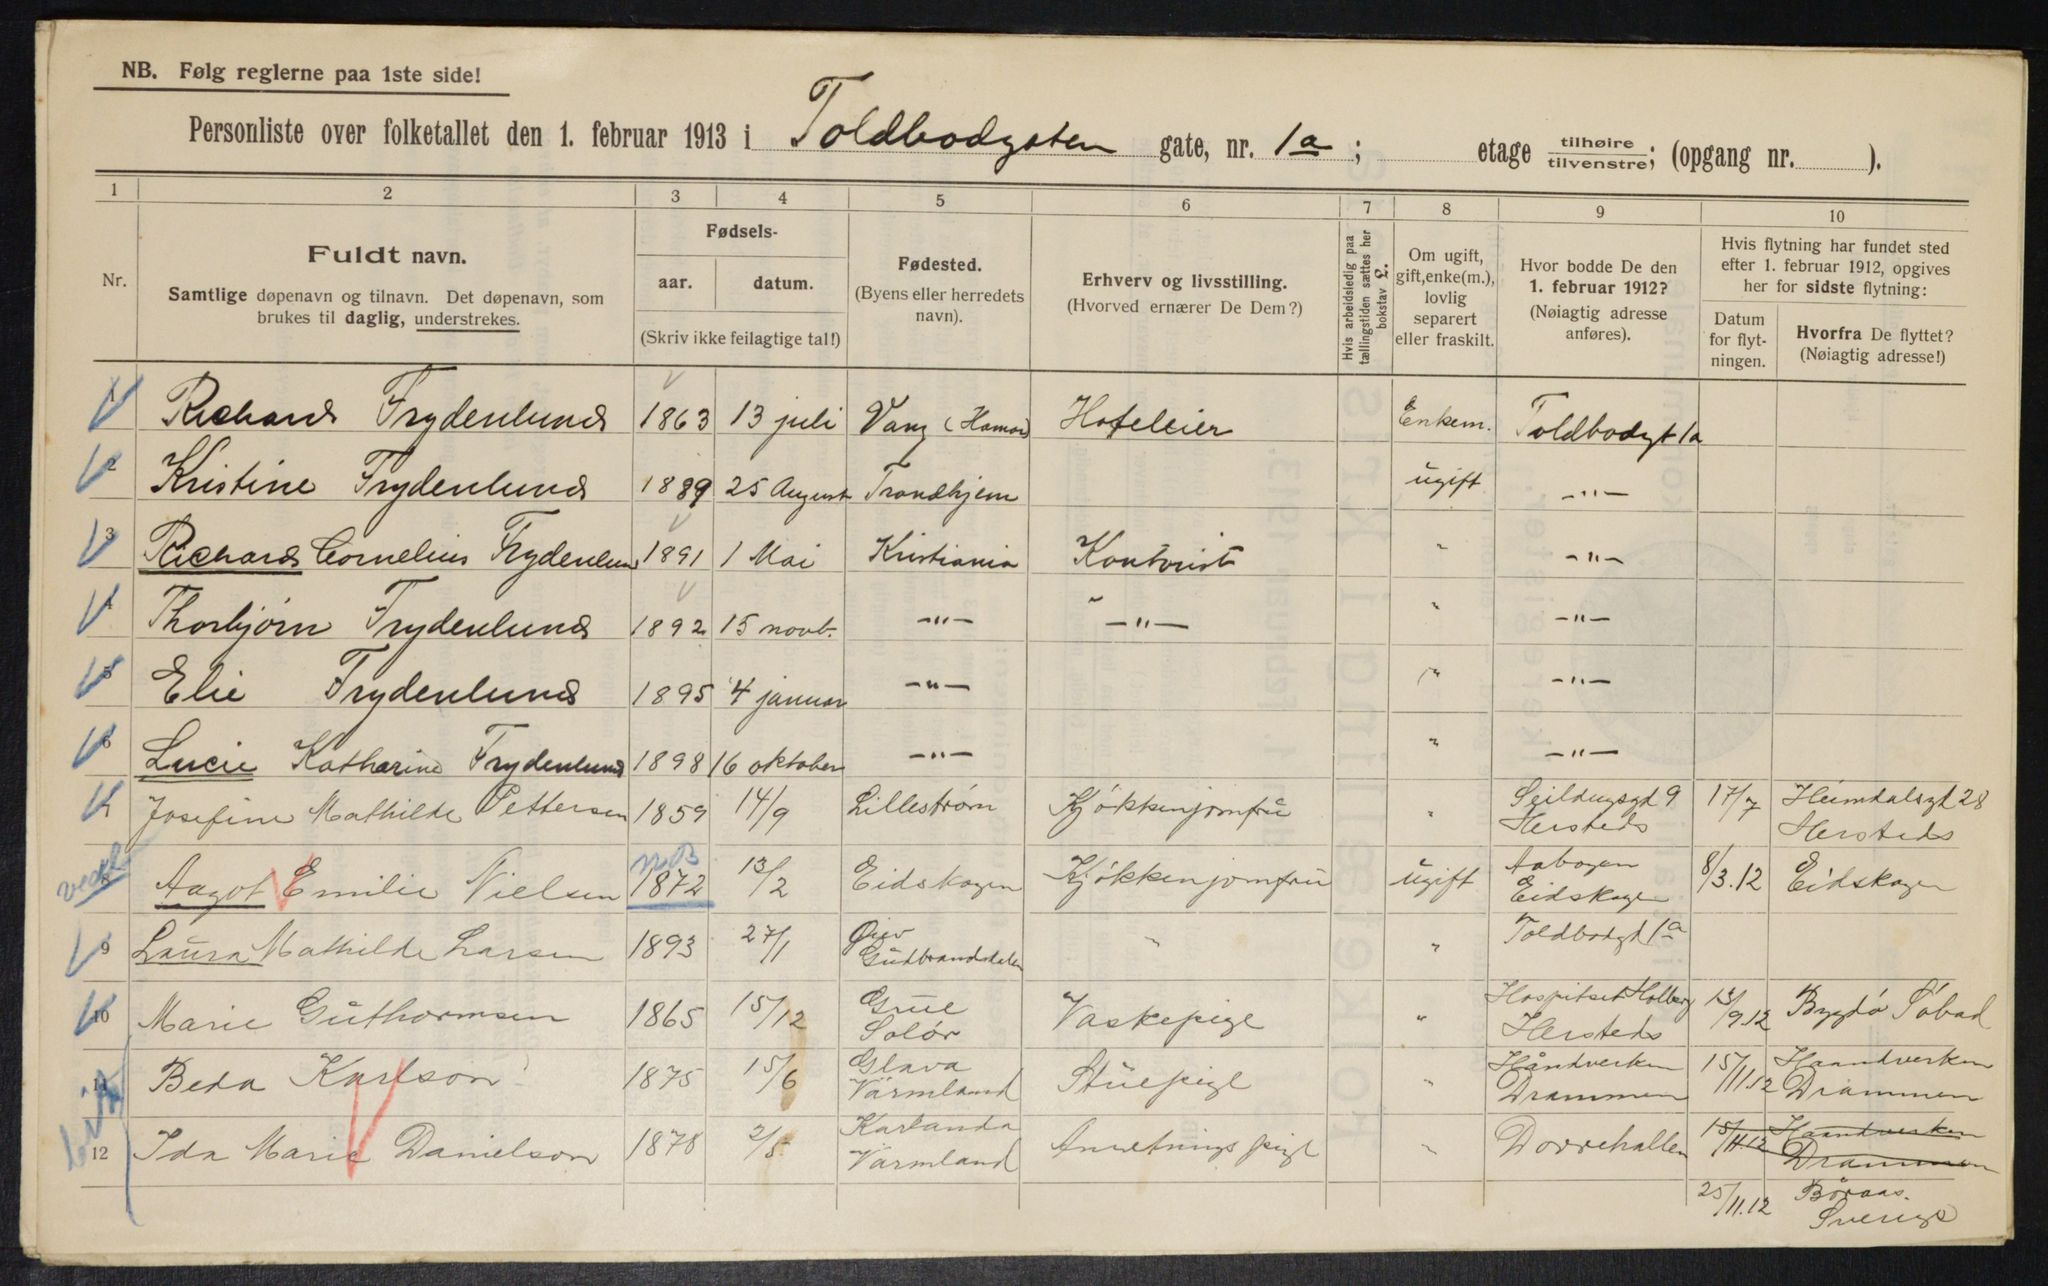 NB. Følg reglerne paa 1ste side!
Personliste over folketallet den 1. februar 1913 i Toldbodgaten gate, nr. 1a; etage tilhøire tilvenstre; (opgang nr. ).
1 2 3 4 5 6 7 8 9 10
Nr.
Fuldt navn.
Samtlige døpenavn og tilnavn. Det døpenavn, som
brukes til daglig, understrekes.
Fødsels-
aar. datum.
(Skriv ikke feilagtige tal!)
Fødested.
(Byens eller herredets
navn).
Erhverv og livsstilling.
(Hvorved ernærer De Dem?)
Hvis arbeidsledig paa
tællingstiden sættes her
bokstav £.
Om ugift,
gift, enke(m.),
lovlig
separert
eller fraskilt.
Hvor bodde De den
1. februar 1912?
(Nøiagtig adresse
anføres).
Hvis flytning har fundet sted
efter 1. februar 1912, opgives
her for sidste flytning:
Datum
for flyt-
ningen.
Hvorfra De flyttet?
(Nøiagtig adresse!)
1 Richard Frydenlund 1863 13 juli Vang (Hamar) Hoteleier Enkem. Toldbodgt 1a
2 Kristine Frydenlund 1889 25 August Trondhjem ugift —"—
3 Richard Cornelius Frydenlund 1891 1 Mai Kristiania Kontorist " —"—
4 Thorbjørn Frydenlund 1892 15 novb. —"— —"— " —"—
5 Elie Frydenlund 1895 4 januar —"— " —"—
6 Lucie Katharine Frydenlund 1898 16 oktober —"— " —"—
Josefine Mathilde Pettersen 1859 14/9 Lillestrøm Kjøkkenjomfru " Seildugsgt 9 Hersteds 17/7 Heimdalsgt 28 Hersteds
8 Aagot Emilie Nielsen 1872 13/2 Eidskogen Kjøkkenjomfru ugift Aabogen Eidskogen 8/3.12 Eidskogen
9 Laura Mathilde Larsen 1893 27/1 Øier Gudbrandsdalen " " Toldbodgt 1a
10 Marie Guthormsen 1865 15/12 Grue Solør Vaskepige " Hospitset Holberg Hersteds 13/9.12 Bygdø Søbad
11 Beda Karlson 1875 15/6 Glava Värmland Stuepige " Håndverken Drammen 15/11.12 Haandverken Drammen
12 Ida Marie Danielson 1878 2/5 Karlanda Värmland Anretningspige " Dovrehallen 15/11.12 Haandverken Drammen
25/11.12 Boraas.
Sverige